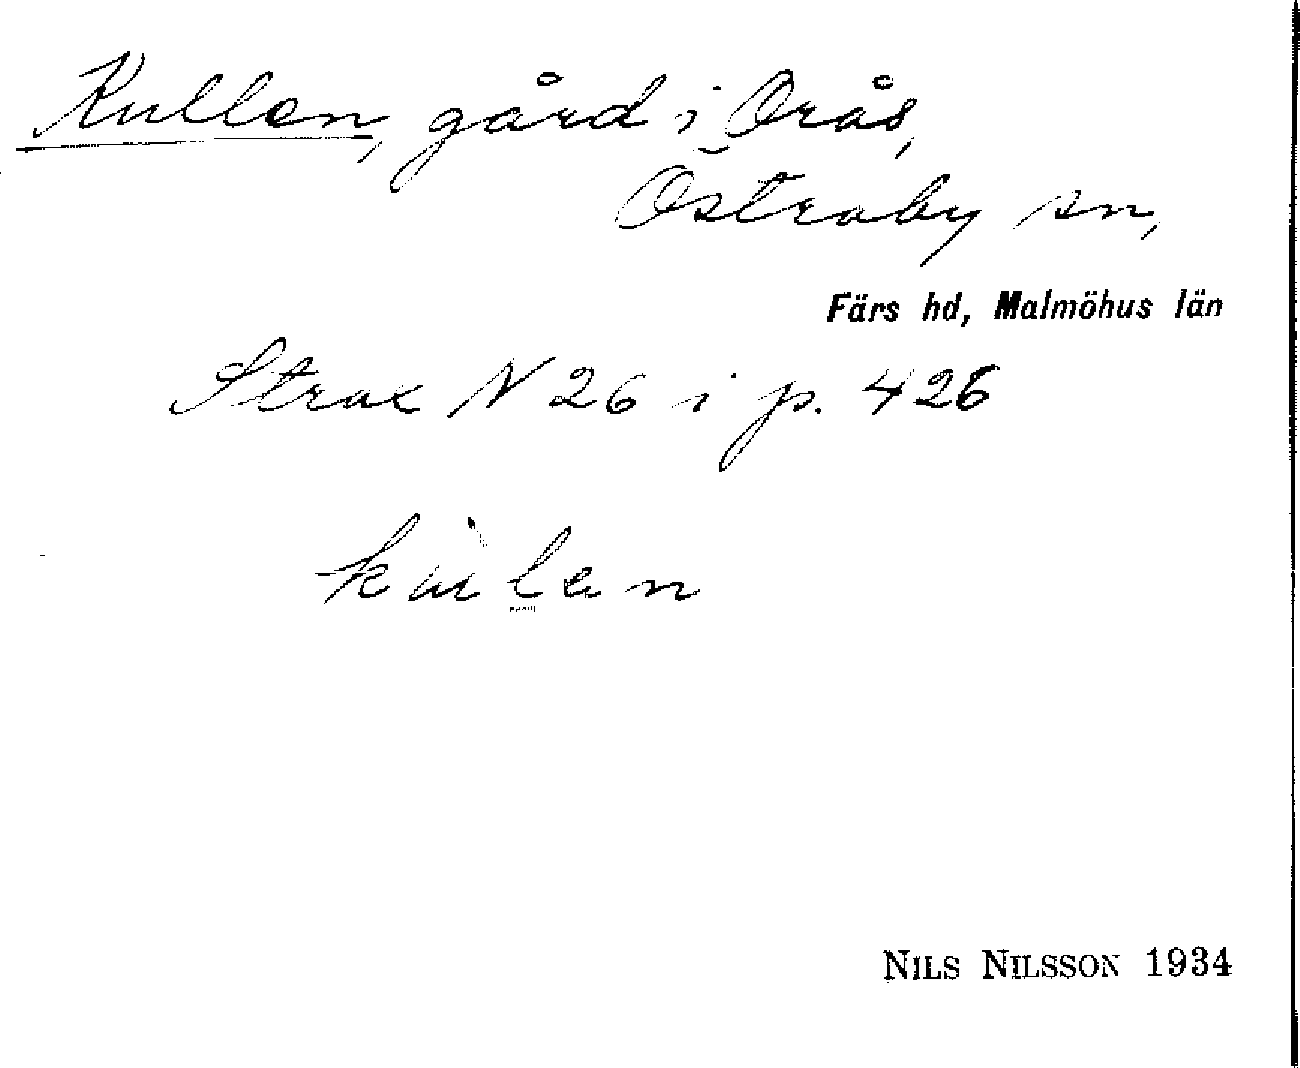 Kullen, gård i Orås,
Östraby sn,
Färs hd, Malmöhus län
Strax N 26 i p. 426
kùlen
NILS NILSSON 1934